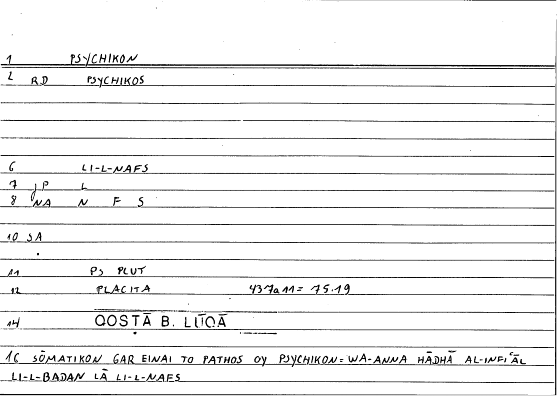 1 PSYCHIKON
2 RD PSYCHIKOS
6 LI-L-NAFS
7 JP L
8 NA N F S
10 SA
11 PS PLUT
12 PLACITA 437a11= 75.19
14 QOSTĀ B. LŪQĀ
16 SŌMATIKON GAR EINAI TO PATHOS OY PSYCHIKON= WA-ANNA HĀDHĀ AL-INFIʿĀL
LI-L-BADAN LĀ LI-L-NAFS